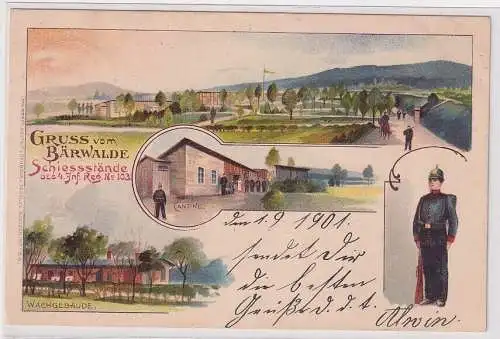 GRUSS vom
BÄRWALDE
Schiessstände
des 4. Inf. Reg. No 103.
CANTINE.
WACHGEBÄUDE.
den 1.9 1901.
sendet Dir
die besten
Grüße d. d. t.
Alwin.